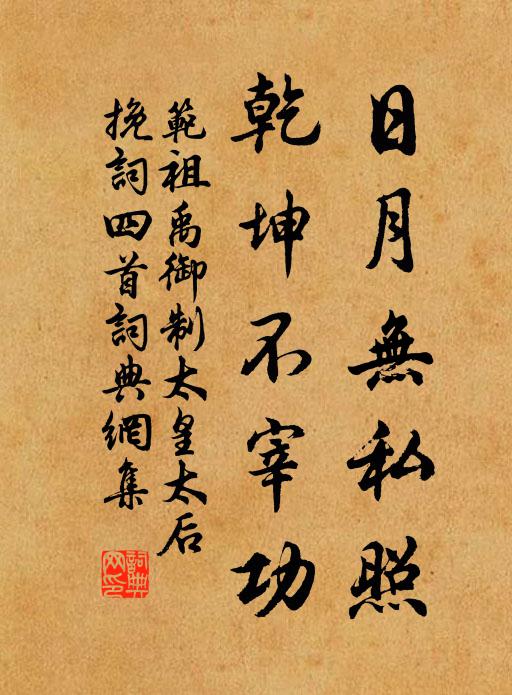 日月無私照
乾坤不宰功
範祖禹御制太皇太后
挽詞四首詞典網集
詞典
网印